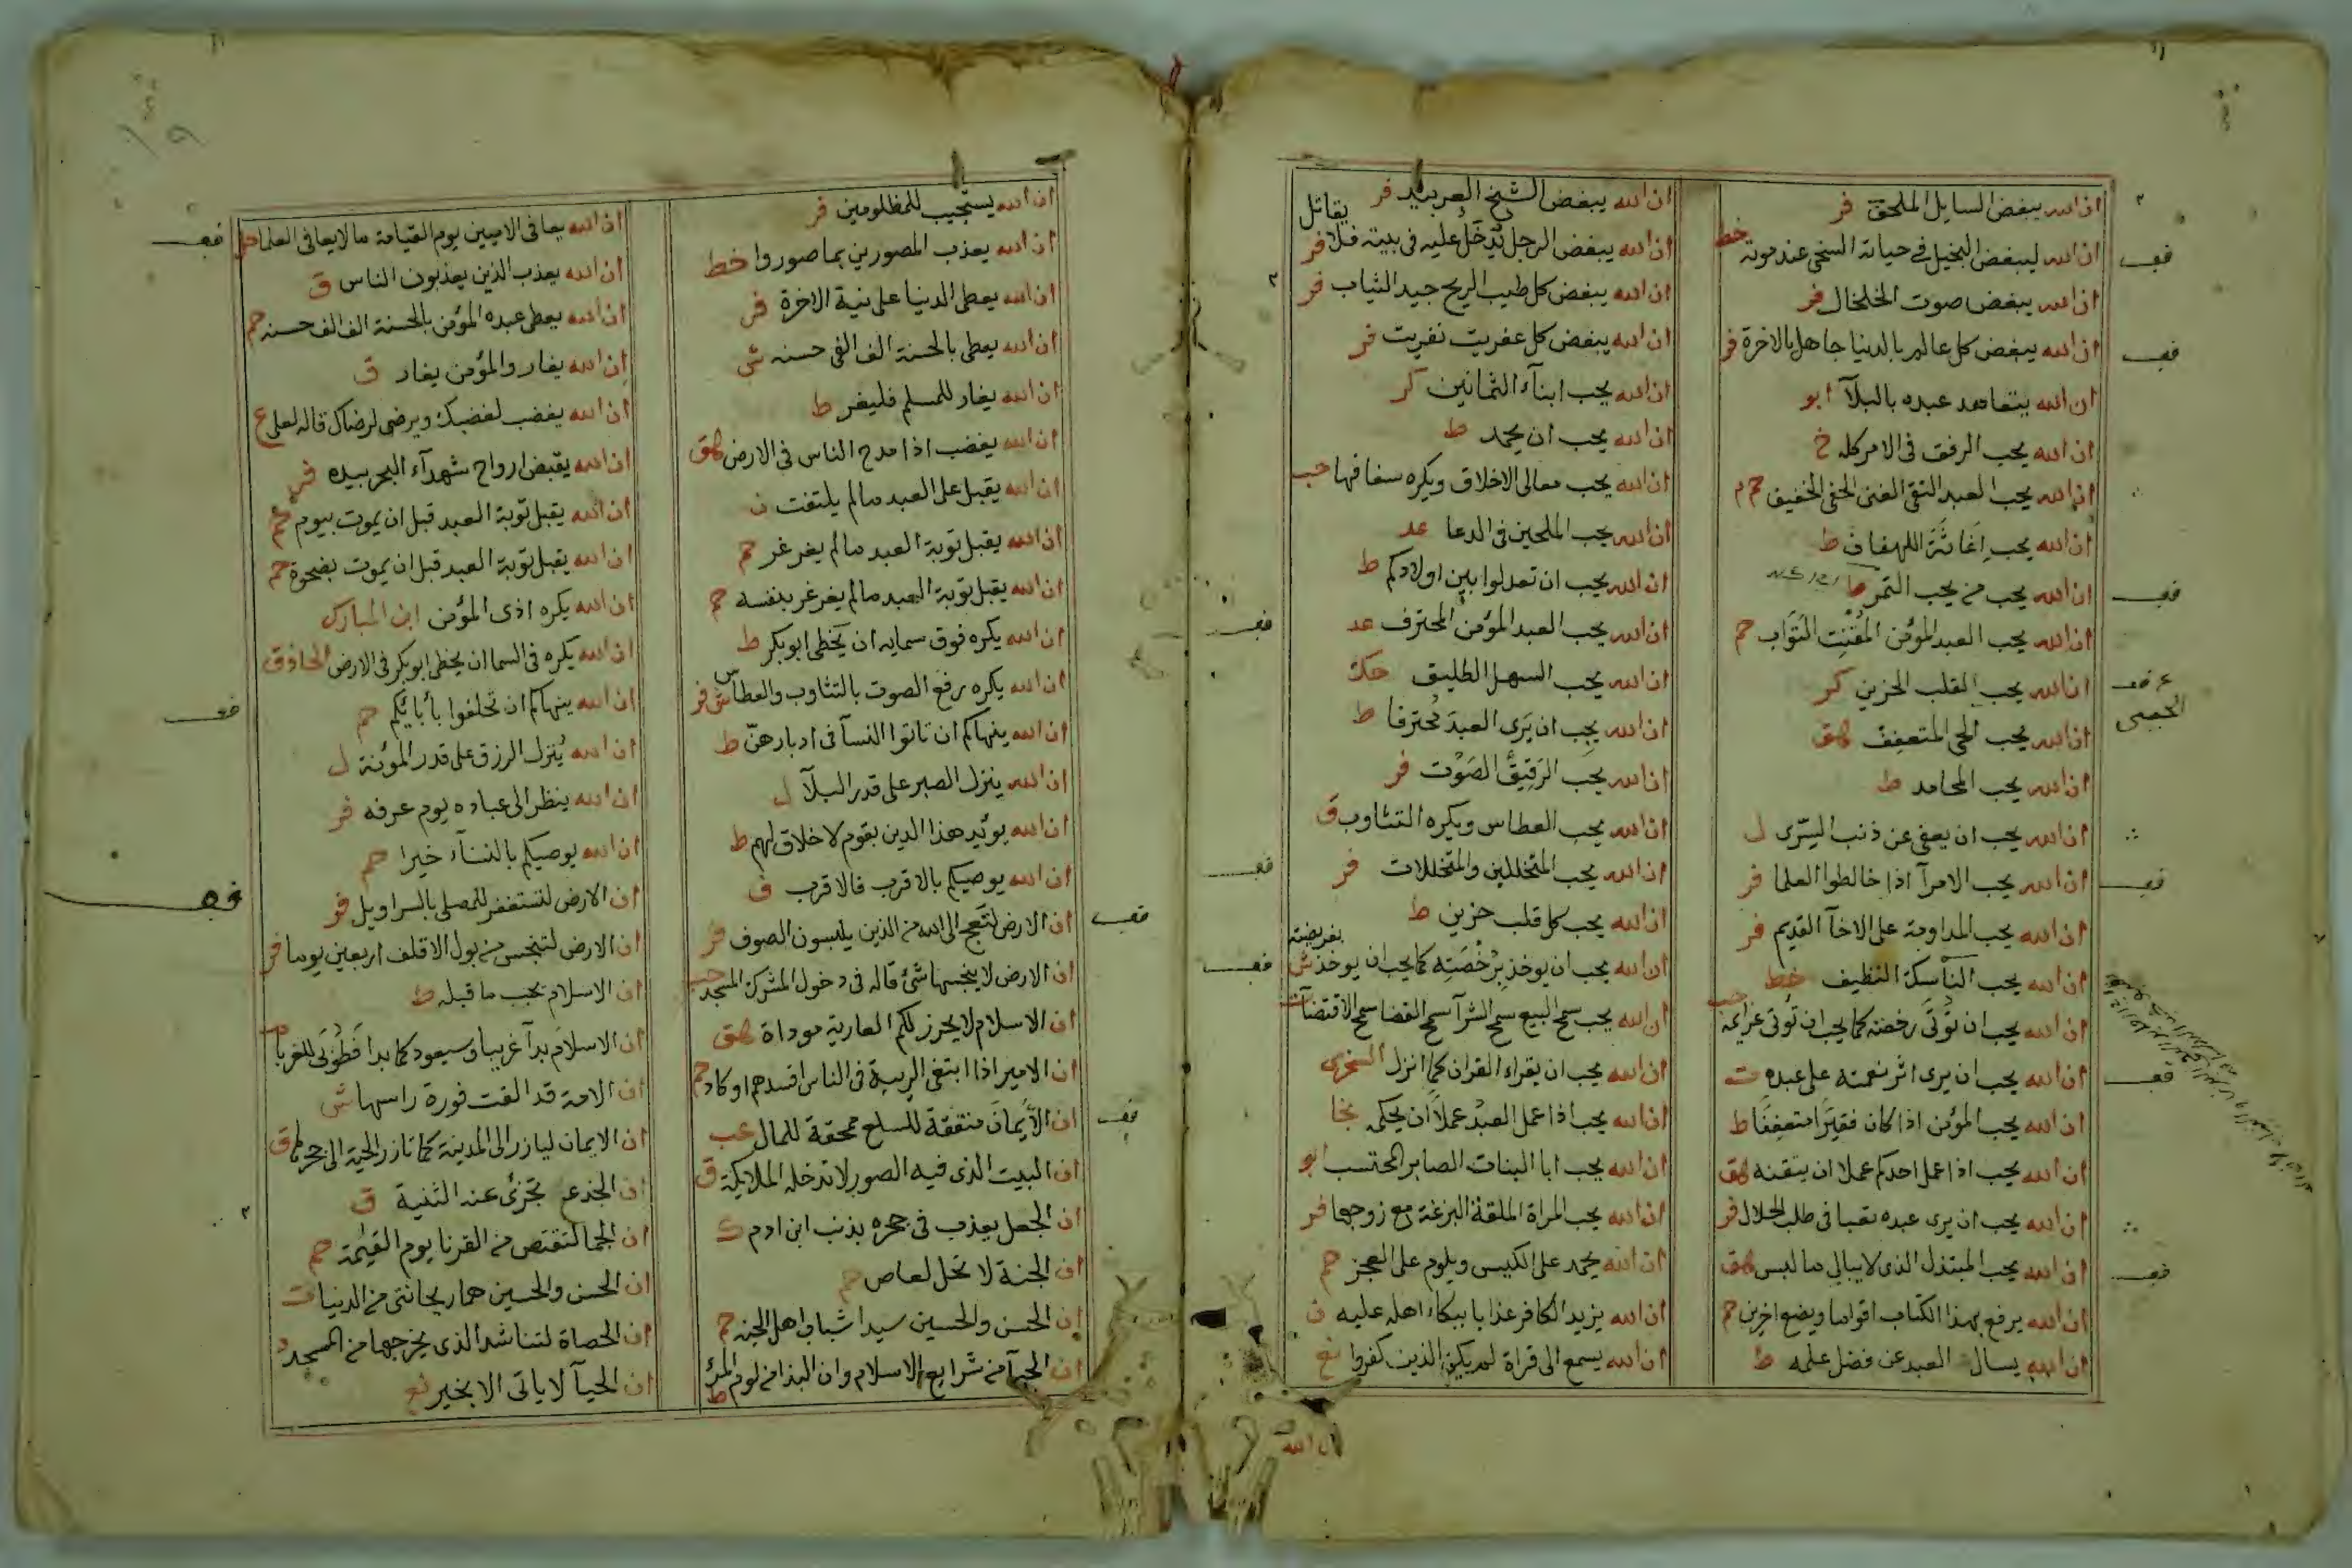 ان الله يبغض السايل الملحف فر
ان الله ليبغض البخيل في حياته السخى عند موته خط
ان الله يبغض صوت الخلخال فر
ان الله يبغض كل عالم بالدنيا جاهل بالاخرة فر
ان الله يتعاهد عبده بالبلآ ابو
ان الله يحب الرفق فى الامر كله خ
ان الله يحب العبد التقى الغنى الخفى حم م
ان الله يحب اغاثة اللهفان ط
ان الله يحب من يحب التمر ط
ان الله يحب العبد المؤمن المفتن التواب حم
ان الله يحب القلب الحزين كر
ان الله يحب الحيى المتعفف هق
ان الله يحب المحامد ط
ان الله يحب ان يعفى عن ذنب السرى ل
ان الله يحب الامرآ اذا خالطوا العلما فر
ان الله يحب المداومة على الاخآ القديم فر
ان الله يحب الناسك النظيف خط
ان الله يحب ان تؤتى رخصته كما يحب ان تؤتى عزائمه حب
ان الله يحب ان يرى اثر نعمته على عبده ت
ان الله يحب المؤمن اذا كان فقيرا متعففا ط
ان الله يحب اذا عمل احدكم عملا ان يتقنه هق
ان الله يحب ان يرى عبده تعبا فى طلب الحلال فر
ان الله يحب المبتذل الذى لا يبالي ما لبس هق
ان الله يرفع بهذا الكتاب اقواما ويضع اخرين حم
ان الله يسال العبد عن فضل علمه ط
ان الله يبغض الشيخ الغربيب فر
ان الله يبغض الرجل يدخل عليه فى بيته فلا يقاتل فر
ان الله يبغض كل طيب الريح جيد الثياب فر
ان الله يبغض كل عفريت نفريت فر
ان الله يحب ابنآء الثمانين كر
ان الله يحب ان يحمد ط
ان الله يحب معالى الاخلاق ويكره سفسافها حب
ان الله يحب الملحين فى الدعا عد
ان الله يحب ان تعدلوا بين اولادكم ط
ان الله يحب العبد المؤمن المحترف عد
ان الله يحب السهل الطليق حك
ان الله يحب ان يرى العبد محترفا ط
ان الله يحب الرقيق الصوت فر
ان الله يحب العطاس ويكره التثاوب ق
ان الله يحب المتخللين والمتخللات فر
ان الله يحب كل قلب حزين ط
ان الله يحب ان يوخذ برخصته كما يحب ان يوخذ بفريضته ش
ان الله يحب سمح البيع سمح الشرآ سمح القضا سمح الاقتضآ ت
ان الله يحب ان يقراء القران كما انزل السجزى
ان الله يحب اذا عمل العبد عملا ان يحكمه نجا
ان الله يحب ابا البنات الصابر المحتسب ابو
ان الله يحب المراة الملقة البزعة مع زوجها فر
ان الله يحمد على الكيس ويلوم على العجز حم
ان الله يزيد الكافر عذابا ببكاء اهله عليه ن
ان الله يسمع الى قراة لم يكن الذين كفروا نع
ان الله
ان الله يستجيب للمظلومين فر
ان الله يعذب المصورين بما صوروا خط
ان الله يعطى الدنيا على نية الاخرة فر
ان الله يعطى بالحسنة الف الفى حسنه ش
ان الله يغار للمسلم فليغر ط
ان الله يغضب اذا مدح الناس فى الارض هق
ان الله يقبل على العبد ما لم يلتفت ن
ان الله يقبل توبة العبد ما لم يغرغر حم
ان الله يقبل توبة العبد ما لم يغرغر بنفسه حم
ان الله يكره فوق سمايه ان يخطى ابو بكر ط
ان الله يكره رفع الصوت بالتثاوب والعطاس فر
ان الله ينهاكم ان تاتوا النسآ فى ادبارهن ط
ان الله ينزل الصبر على قدر البلآ ل
ان الله يوئد هذا الدين بقوم لا خلاق لهم ط
ان الله يوصيكم بالاقرب فالاقرب ق
ان الارض لتعج الى الله من الذين يلبسون الصوف فر
ان الارض لا ينجسها شئ قاله فى دخول المشرك المسجد حب
ان الاسلام لا يحرز لكم العارية موداة هق
ان الامير اذا ابتغى الريبة فى الناس افسدهم او كاد حم
ان الأيمان منفقة للسلع ممحقة للمال عب
ان البيت الذى فيه الصور لا تدخله الملايكة ق
ان الجعل يعذب فى جحره بذنب ابن ادم ك
ان الجنة لا تحل لعاص حم
ان الحسن والحسين سيدا شباب اهل الجنه حم
ان الحيآ من شرايع الاسلام وان البذا من لوم المرء ط
ان الله يعافى الاميين يوم القيامة ما لا يعافى العلما حل
ان الله يعذب الذين يعذبون الناس ق
ان الله يعطى عبده المؤمن بالحسنة الف الف حسنه حم
ان الله يغار والمؤمن يغار ق
ان الله يغضب لغضبك ويرضى لرضاك قاله لعلى ع
ان الله يقبض ارواح شهدآء البحر بيده فر
ان الله يقبل توبة العبد قبل ان يموت بيوم حم
ان الله يقبل توبة العبد قبل ان يموت بضحوة حم
ان الله يكره اذى المؤمن ابن المبارك
ان الله يكره فى السما ان يخطى ابو بكر فى الارض الحاذق
ان الله ينهاكم ان تحلفوا بأبايكم حم
ان الله ينزل الرزق على قدر المؤنة ل
ان الله ينظر الى عباده يوم عرفه فر
ان الله يوصيكم بالنسآء خيرا حم
ان الارض لتستغفر للمصلى بالسراويل فر
ان الارض لتنجس من بول الاقلف اربعين يوما فر
ان الاسلام يجب ما قبله ط
ان الاسلام بدآ غريبا وسيعود كما بدا فطوبى للغربا م
ان الامة قد القت فروة راسها ش
ان الايمان ليازر الى المدينة كما تازر الحية الى جحرها ق
ان الجذع تجزئ عند الثنية ق
ان الجما لتقتص من القرنا يوم القيمة حم
ان الحسن والحسين هما ريحانتى من الدنيا ت
ان الحصاة لتناشد الذى يخرجها من المسجد د
ان الحيآ لا ياتى الا بخير نع